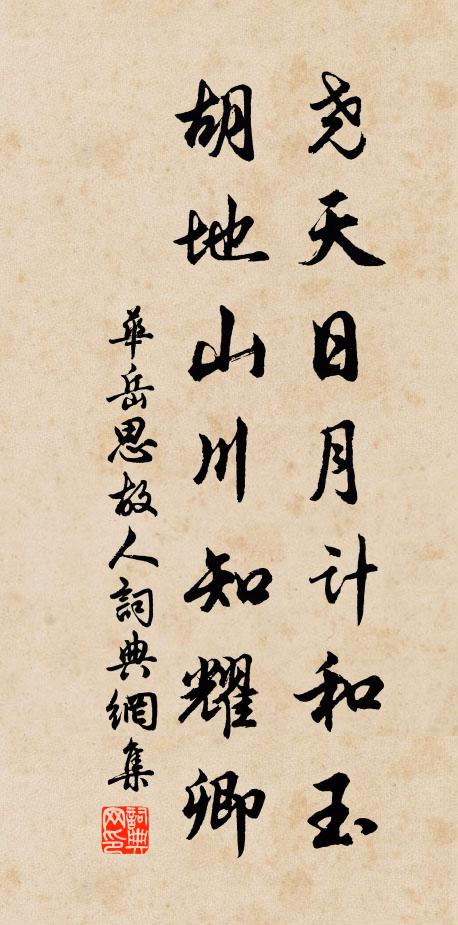 尧天日月计和玉
胡地山川知耀卿
華岳思故人詞典網集
詞典网印